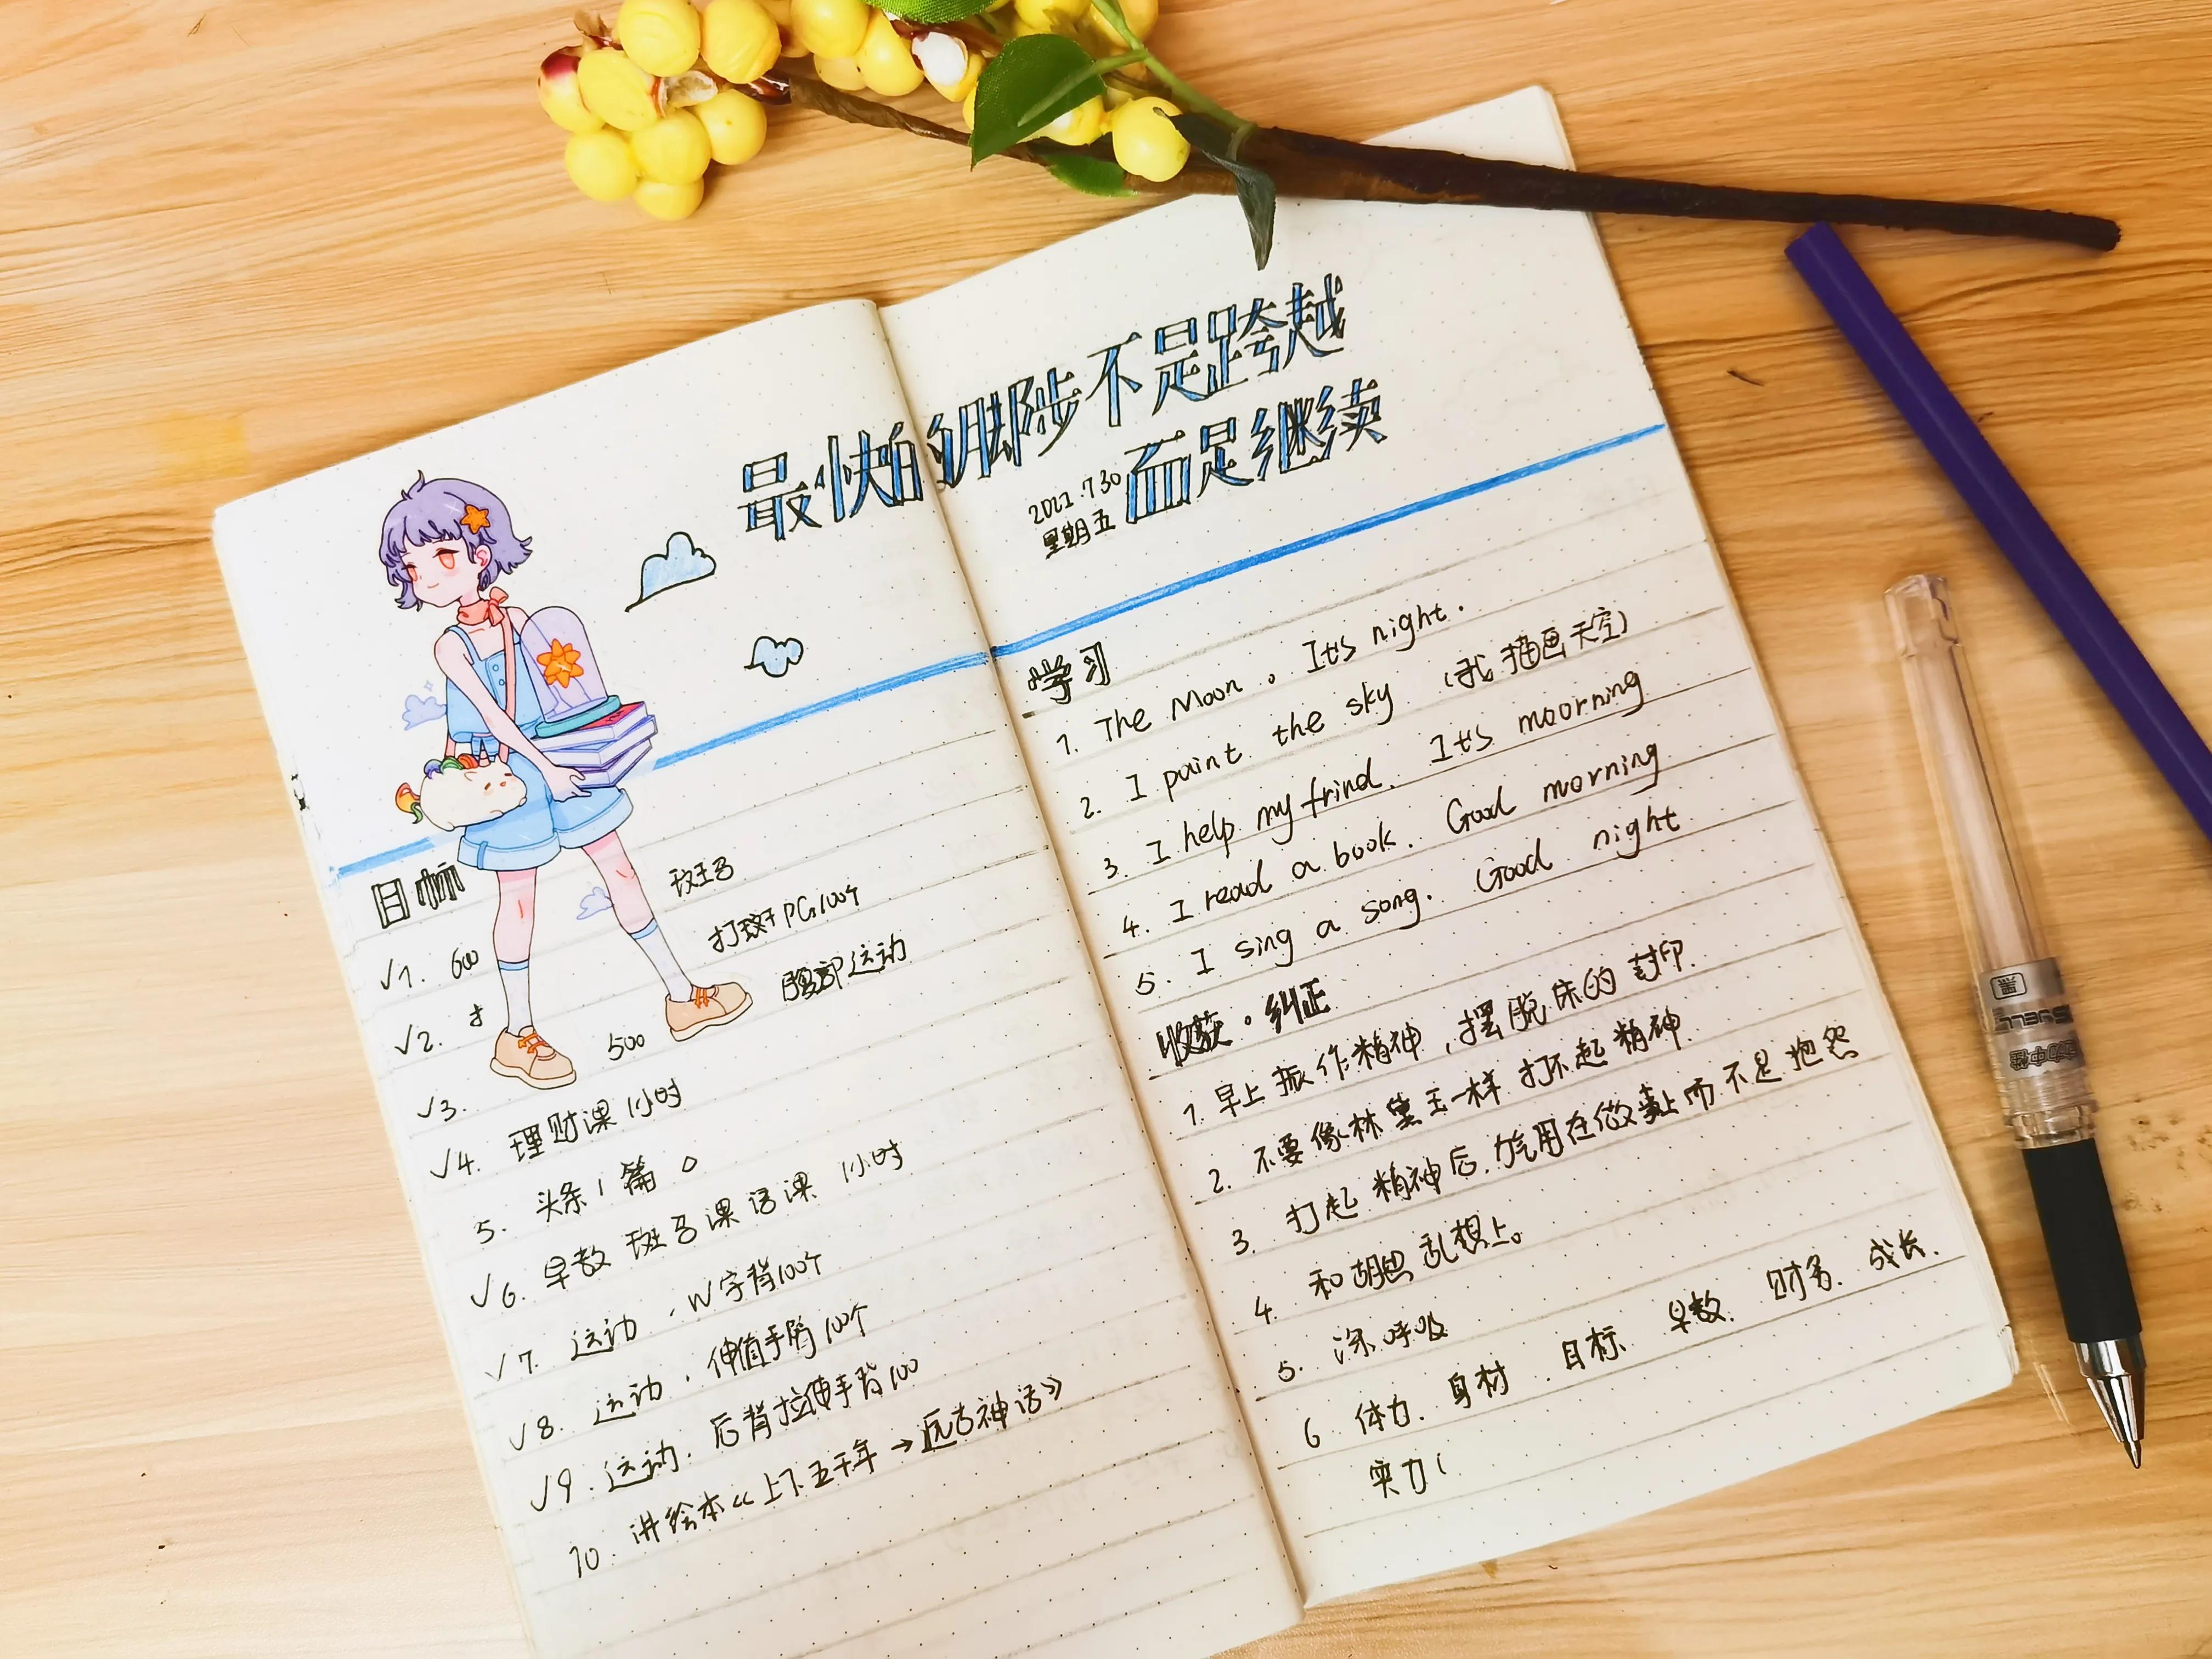 最快的脚步不是跨越
而是继续
2021.7.30
星期五
目标
√1. 600 斑马
√2. 打斑 PG100个
√3. 500 腹部运动
√4. 理财课1小时
5. 头条1篇 0
√6. 早教 斑马课语课 1小时
√7. 运动、W字背100个
√8. 运动、伸值手臂100个
√9. 运动、后背拉伸手背100
10. 讲绘本《上下五千年→远古神话》
学习
1. The Moon。It's night.
2. I paint the sky (我描画天空)
3. I help my frind. It's moorning
4. I read a book. Good morning
5. I sing a song. Good night
收获·纠正
1. 早上振作精神,摆脱床的封印.
2. 不要像林黛玉一样打不起精神.
3. 打起精神后.力气用在做事上而不是抱怨
和胡思乱想上。
4.
5. 深呼吸
6 体力、身材、目标、早教、财务、成长.
实力(